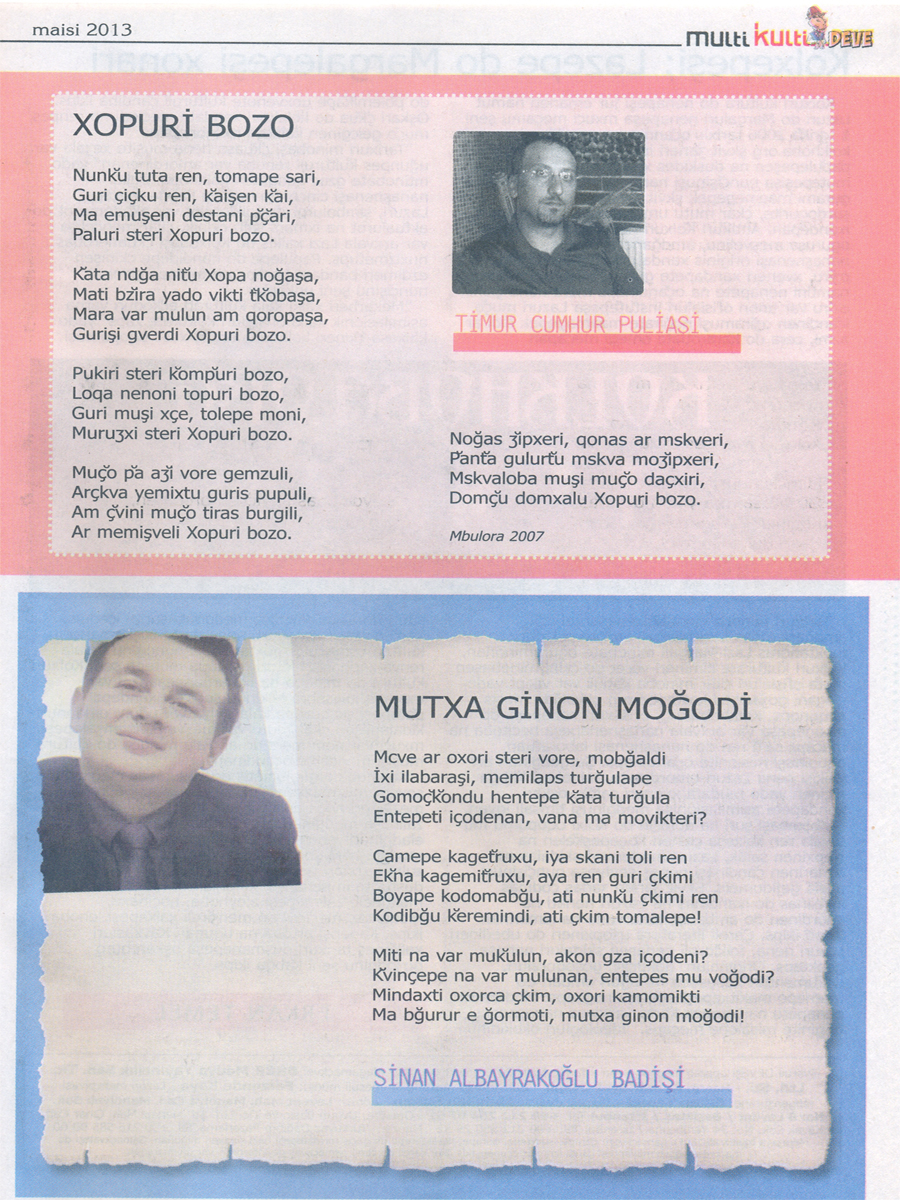 maisi 2013
multi kulti DEVE
XOPURİ BOZO
Nunk̆u tuta ren, tomape sari,
Guri çiçku ren, k̆aişen k̆ai,
Ma emuşeni destani p̆ç̆ari,
Paluri steri Xopuri bozo.
K̆ata ndğa nit̆u Xopa noğaşa,
Mati bz̆ira yado vikti t̆k̆obaşa,
Mara var mulun am qoropaşa,
Gurişi gverdi Xopuri bozo.
Pukiri steri k̆omp̆uri bozo,
Loqa nenoni topuri bozo,
Guri muşi xçe, tolepe moni,
Muruʒxi steri Xopuri bozo.
Muç̆o p̆a aʒ̆i vore gemzuli,
Arçkva yemixtu guris pupuli,
Am ç̆vini muç̆o tiras burgili,
Ar memişveli Xopuri bozo.
TİMUR CUMHUR PULİASİ
Noğas ʒ̆ipxeri, qonas ar mskveri,
P̆ant̆a gulurt̆u mskva moʒ̆ipxeri,
Mskvaloba muşi muç̆o daçxiri,
Domç̆u domxalu Xopuri bozo.
Mbulora 2007
MUTXA GİNON MOĞODİ
Mcve ar oxori steri vore, mobğaldi
İxi ilabaraşi, memilaps turğulape
Gomoç̆k̆ondu hentepe k̆ata turğula
Entepeti içodenan, vana ma movikteri?
Camepe kaget̆ruxu, iya skani toli ren
Ek̆na kagemit̆ruxu, aya ren guri çkimi
Boyape kodomabğu, ati nunk̆u çkimi ren
Kodibğu k̆eremindi, ati çkim tomalepe!
Miti na var muk̆ulun, akon gza içodeni?
K̆vinçepe na var mulunan, entepes mu voğodi?
Mindaxti oxorca çkim, oxori kamomikti
Ma bğurur e ğormoti, mutxa ginon moğodi!
SİNAN ALBAYRAKOĞLU BADİŞİ